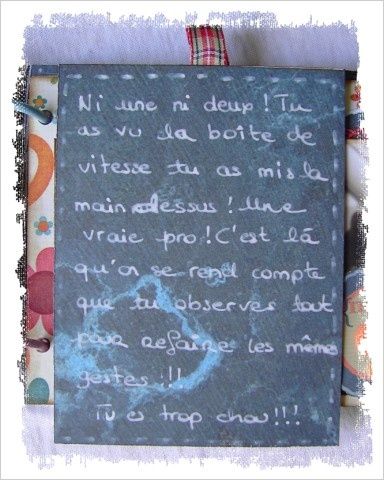 Ni une ni deux ! Tu
as vu la boîte de
vitesse tu as mis la
main dessus ! Une
vraie pro ! C'est là
qu'on se rend compte
que tu observes tout
pour refaire les mêmes
gestes !!!
Tu es trop chou !!!